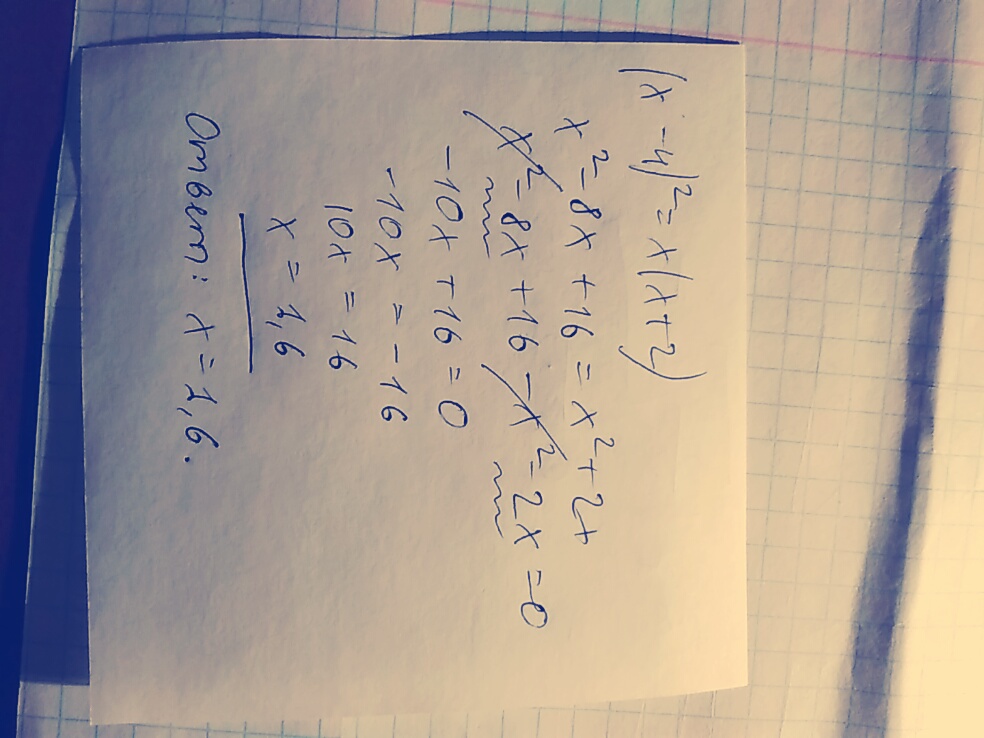 (x - 4)² = x(x + 2)
x² - 8x + 16 = x² + 2x
x² - 8x + 16 - x² - 2x = 0
-10x + 16 = 0
-10x = -16
10x = 16
x = 1,6
Ответ: x = 1,6.